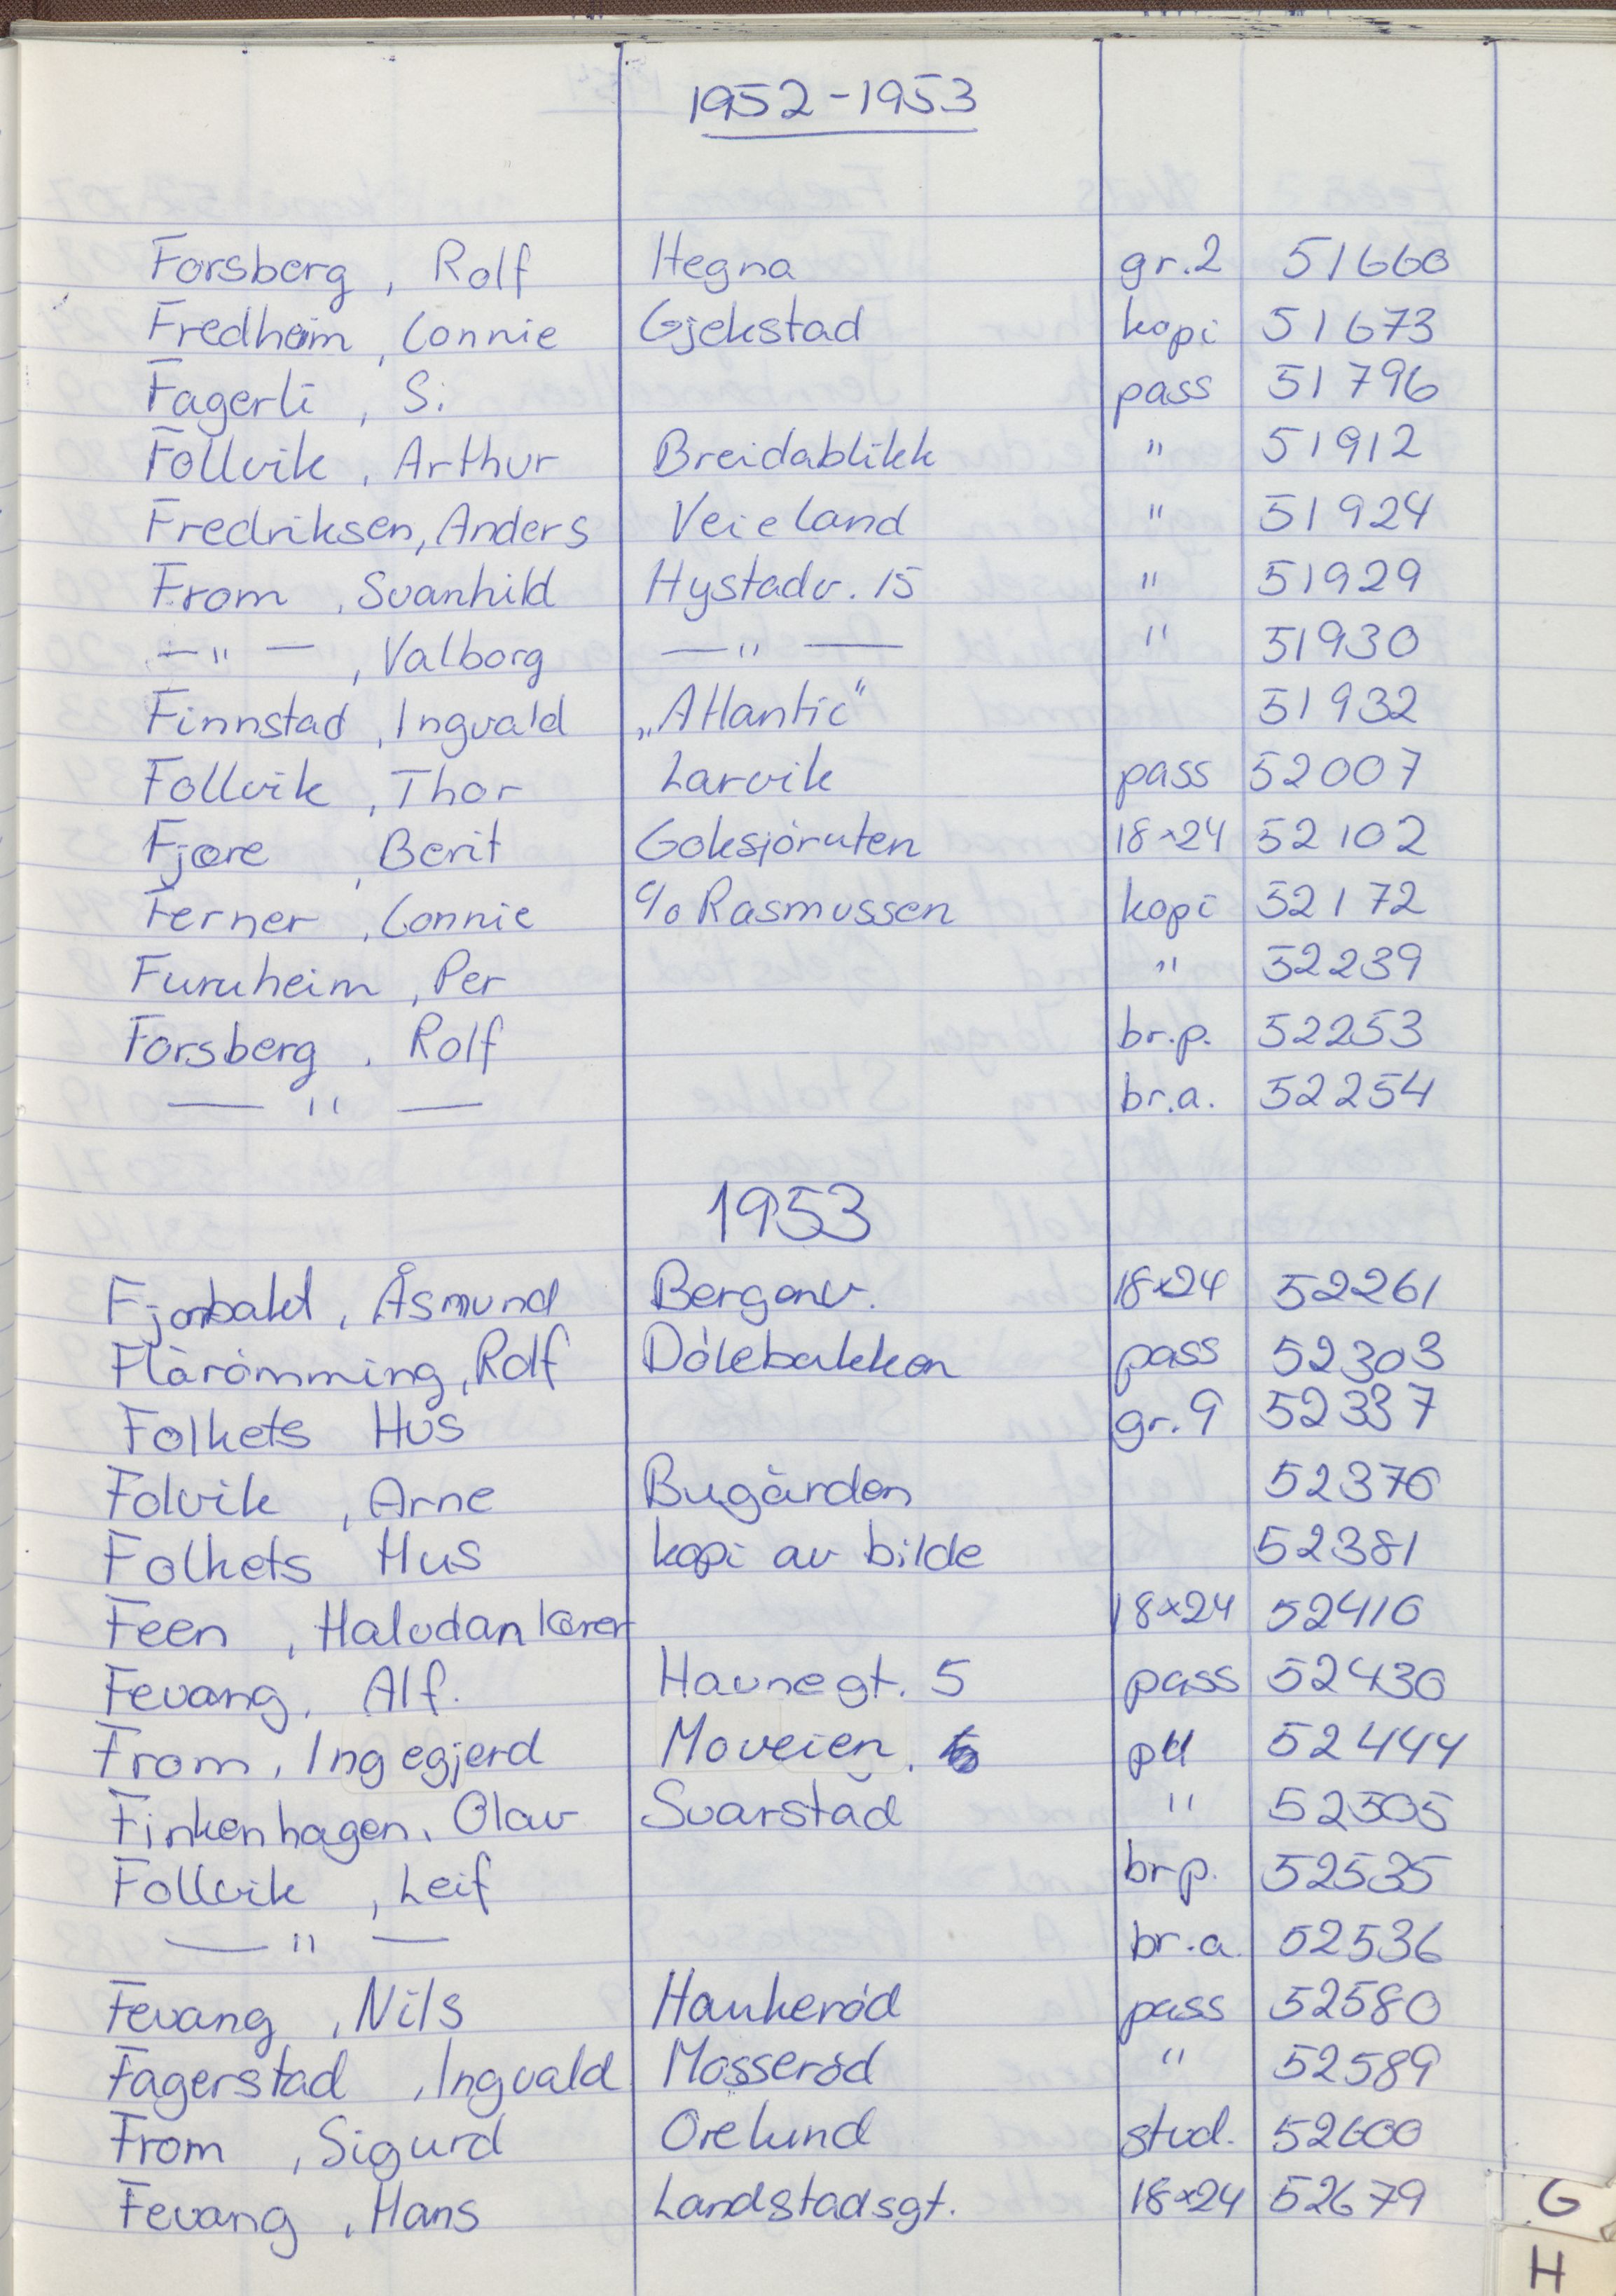 1952-1953
Forsberg, Rolf Hegna gr.2 51660
Fredheim, Connie Gjekstad kopi 51673
Fagerli, S. pass 51796
Follvik, Arthur Breidablikk " 51912
Fredriksen, Anders Veieland " 51924
From, Svanhild Hystadv. 15 " 51929
—"—, Valborg —"— " 51930
Finnstad, Ingvald „Atlantic" 51932
Follvik, Thor Larvik pass 52007
Fjære, Berit Goksjøruten 18x24 52102
Ferner, Connie c/o Rasmussen kopi 52172
Furuheim, Per " 52239
Forsberg, Rolf br.p. 52253
—"— br.a. 52254
1953
Åsmund Berganv. 18x24 52261
Flårømming, Rolf Dølebakken pass 52303
Folkets Hus gr.9 52337
Folvik, Arne Bugården 52376
Folkets Hus kopi av bilde 52381
Feen, Halvdan 18x24 52416
Fevang, Alf. Havnegt. 5 pass 52430
From, Ingegjerd Moveien. 52444
Finkenhagen, Olav Svarstad " 52505
Follvik, Leif br.p. 52535
—"— br.a. 52536
Fevang, Nils Haukerød pass 52580
Fagerstad, Ingvald Mosserød " 52589
From, Sigurd Orelund stud. 52600
Fevang, Hans Landstadsgt. 18x24 52679
G
H